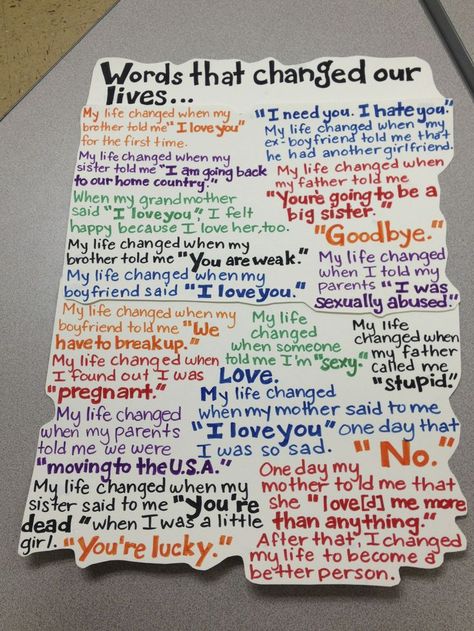 Words that changed our
lives...
My life changed when my
brother told me "I love you"
for the first time.
My life changed when my
sister told me "I am going back
to our home country."
When my grandmother
said "I love you", I felt
happy because I love her, too.
My life changed when my
brother told me "You are weak."
My life changed when my
boyfriend said "I love you."
"I need you. I hate you."
My life changed when my
ex-boyfriend told me that
he had another girlfriend.
My life changed when
my father told me
"You're going to be a
big sister."
"Goodbye."
My life changed
when I told my
parents "I was
sexually abused"
My life changed when my
boyfriend told me "We
have to break up."
My life
changed
when someone
told me I'm "sexy."
My life
changed when
my father
called me
"stupid."
My life changed when
I found out I was
"pregnant."
Love.
My life changed
when my mother said to me
"I love you" one day that
I was so sad.
My life changed
when my parents
told me we were
"moving to the U.S.A."
"No."
My life changed when my
sister said to me "You're
dead" when I was a little
girl.
"You're lucky."
One day my
mother told me that
she "love[d] me more
than anything."
After that, I changed
my life to become a
better person.